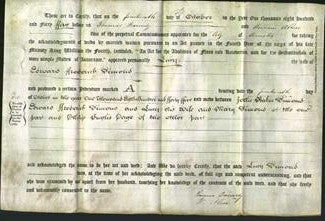 These are to Certify, that on the fourteenth day of October in the year One thousand eight hundred
and Forty five before us
two of the perpetual Commissioners appointed for the for taking
the acknowledgments of deeds by married women pursuant to an Act passed in the Fourth Year of the reign of his late
Majesty King William the Fourth, intituled, "An Act for the Abolition of Fines and Recoveries, and for the substitution of
more simple Modes of Assurance," appeared personally Lucy
the wife of
Edward Frederick Dimond
and produced a certain Indenture marked A bearing date the fourteenth day
of October in the year one thousand eight hundred and forty five and made between Dimond
Edward Frederick Dimond and Lucy his Wife and Mary Dimond of the one
part and Page of the other part
and acknowledged the same to be her act and deed: And We do hereby certify, that the said Lucy Dimond
was, at the time of her acknowledging the said deed, of full age and competent understanding, and that
she was examined by us apart from her husband, touching her knowledge of the contents of the said deed, and that she freely
and voluntarily consented to the same.